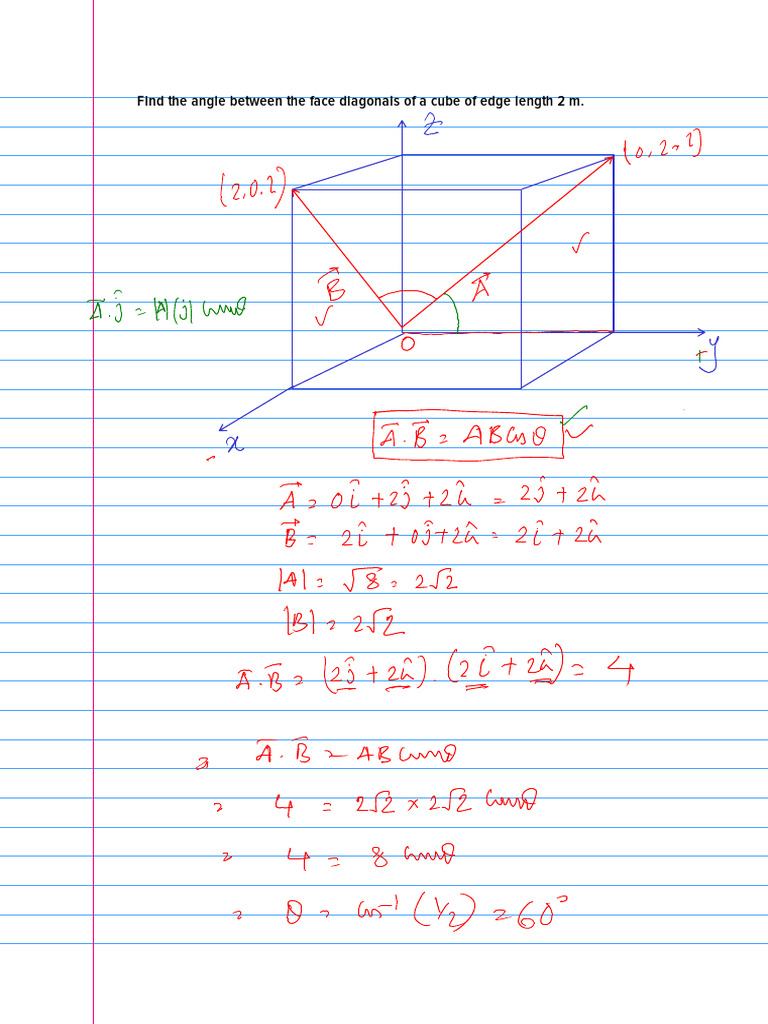 Find the angle between the face diagonals of a cube of edge length 2 m.
z
(0,2,2)
(2,0,2)
B⃗
A⃗
A⃗.ĵ = |A||j| cosθ
O
+y
x
A⃗.B⃗ = AB Cosθ
A⃗ = 0î + 2ĵ + 2k̂ = 2ĵ + 2k̂
B⃗ = 2î + 0ĵ + 2k̂ = 2î + 2k̂
|A| = √8 = 2√2
|B| = 2√2
A⃗.B⃗ = (2ĵ + 2k̂).(2î + 2k̂) = 4
⇒ A⃗.B⃗ = AB cosθ
= 4 = 2√2 × 2√2 cosθ
= 4 = 8 cosθ
= θ = cos⁻¹(1/2) = 60°